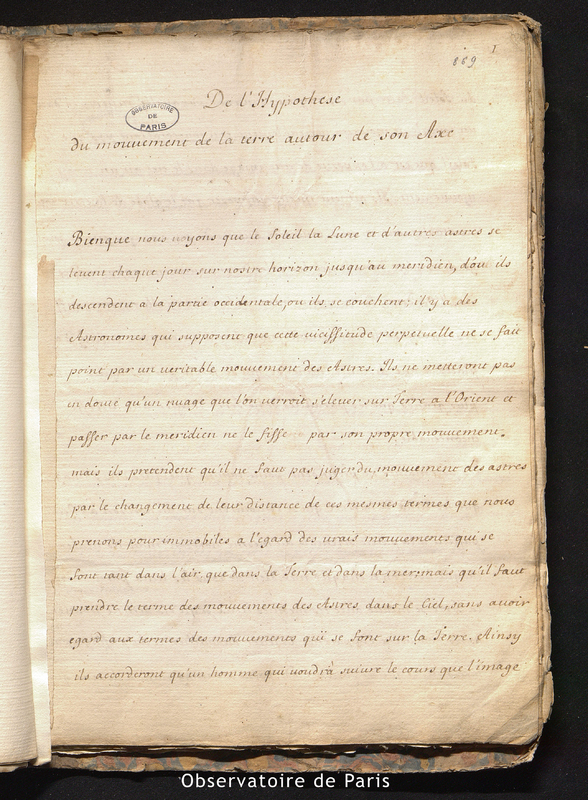 1
889
OBSERVATOIRE
DE
PARIS
De l'Hypothese
du mouuement de la terre autour de son Axe
Bienque nous voyons que le Soleil la Lune et d'autres astres se
leuent chaque jour sur nostre horizon jusqu'au meridien, d'où ils
descendent a la partie occidentale, ou ils se couchent; il y a des
Astronomes qui supposent que cette vicissitude perpetuelle ne se fait
point par un veritable mouuement des Astres. Ils ne metteront pas
en doute qu'un nuage que l'on verroit s'eleuer sur Terre a l'Orient et
passer par le meridien ne le fisse par son propre mouuement.
mais ils pretendent qu'il ne faut pas juger du mouuement des astres
par le changement de leur distance de ces mesmes termes que nous
prenons pour immobiles a l'egard des vrais mouuements qui se
font tant dans l'air que dans la Terre et dans la mer; mais qu'il faut
prendre le terme des mouuements des Astres dans le Ciel, sans auoir
egard aux termes des mouuements qui se font sur la Terre. Ainsy
ils accorderont qu'un homme qui voudra suiure le cours que l'image
Observatoire de Paris